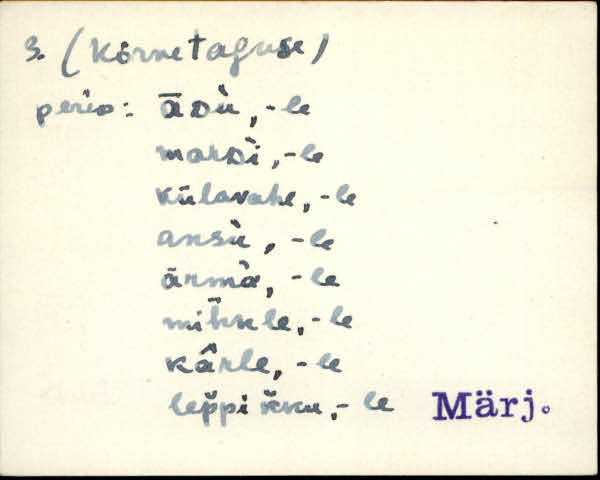 3. (Kõrvetaguse)
peris: āᴅù, -le
marᴅì, -le
külavahe, -le
ansù, -le
ärmà, -le
mihkle, -le
kârle, -le
lep̆pik̆ku, -le Märj.